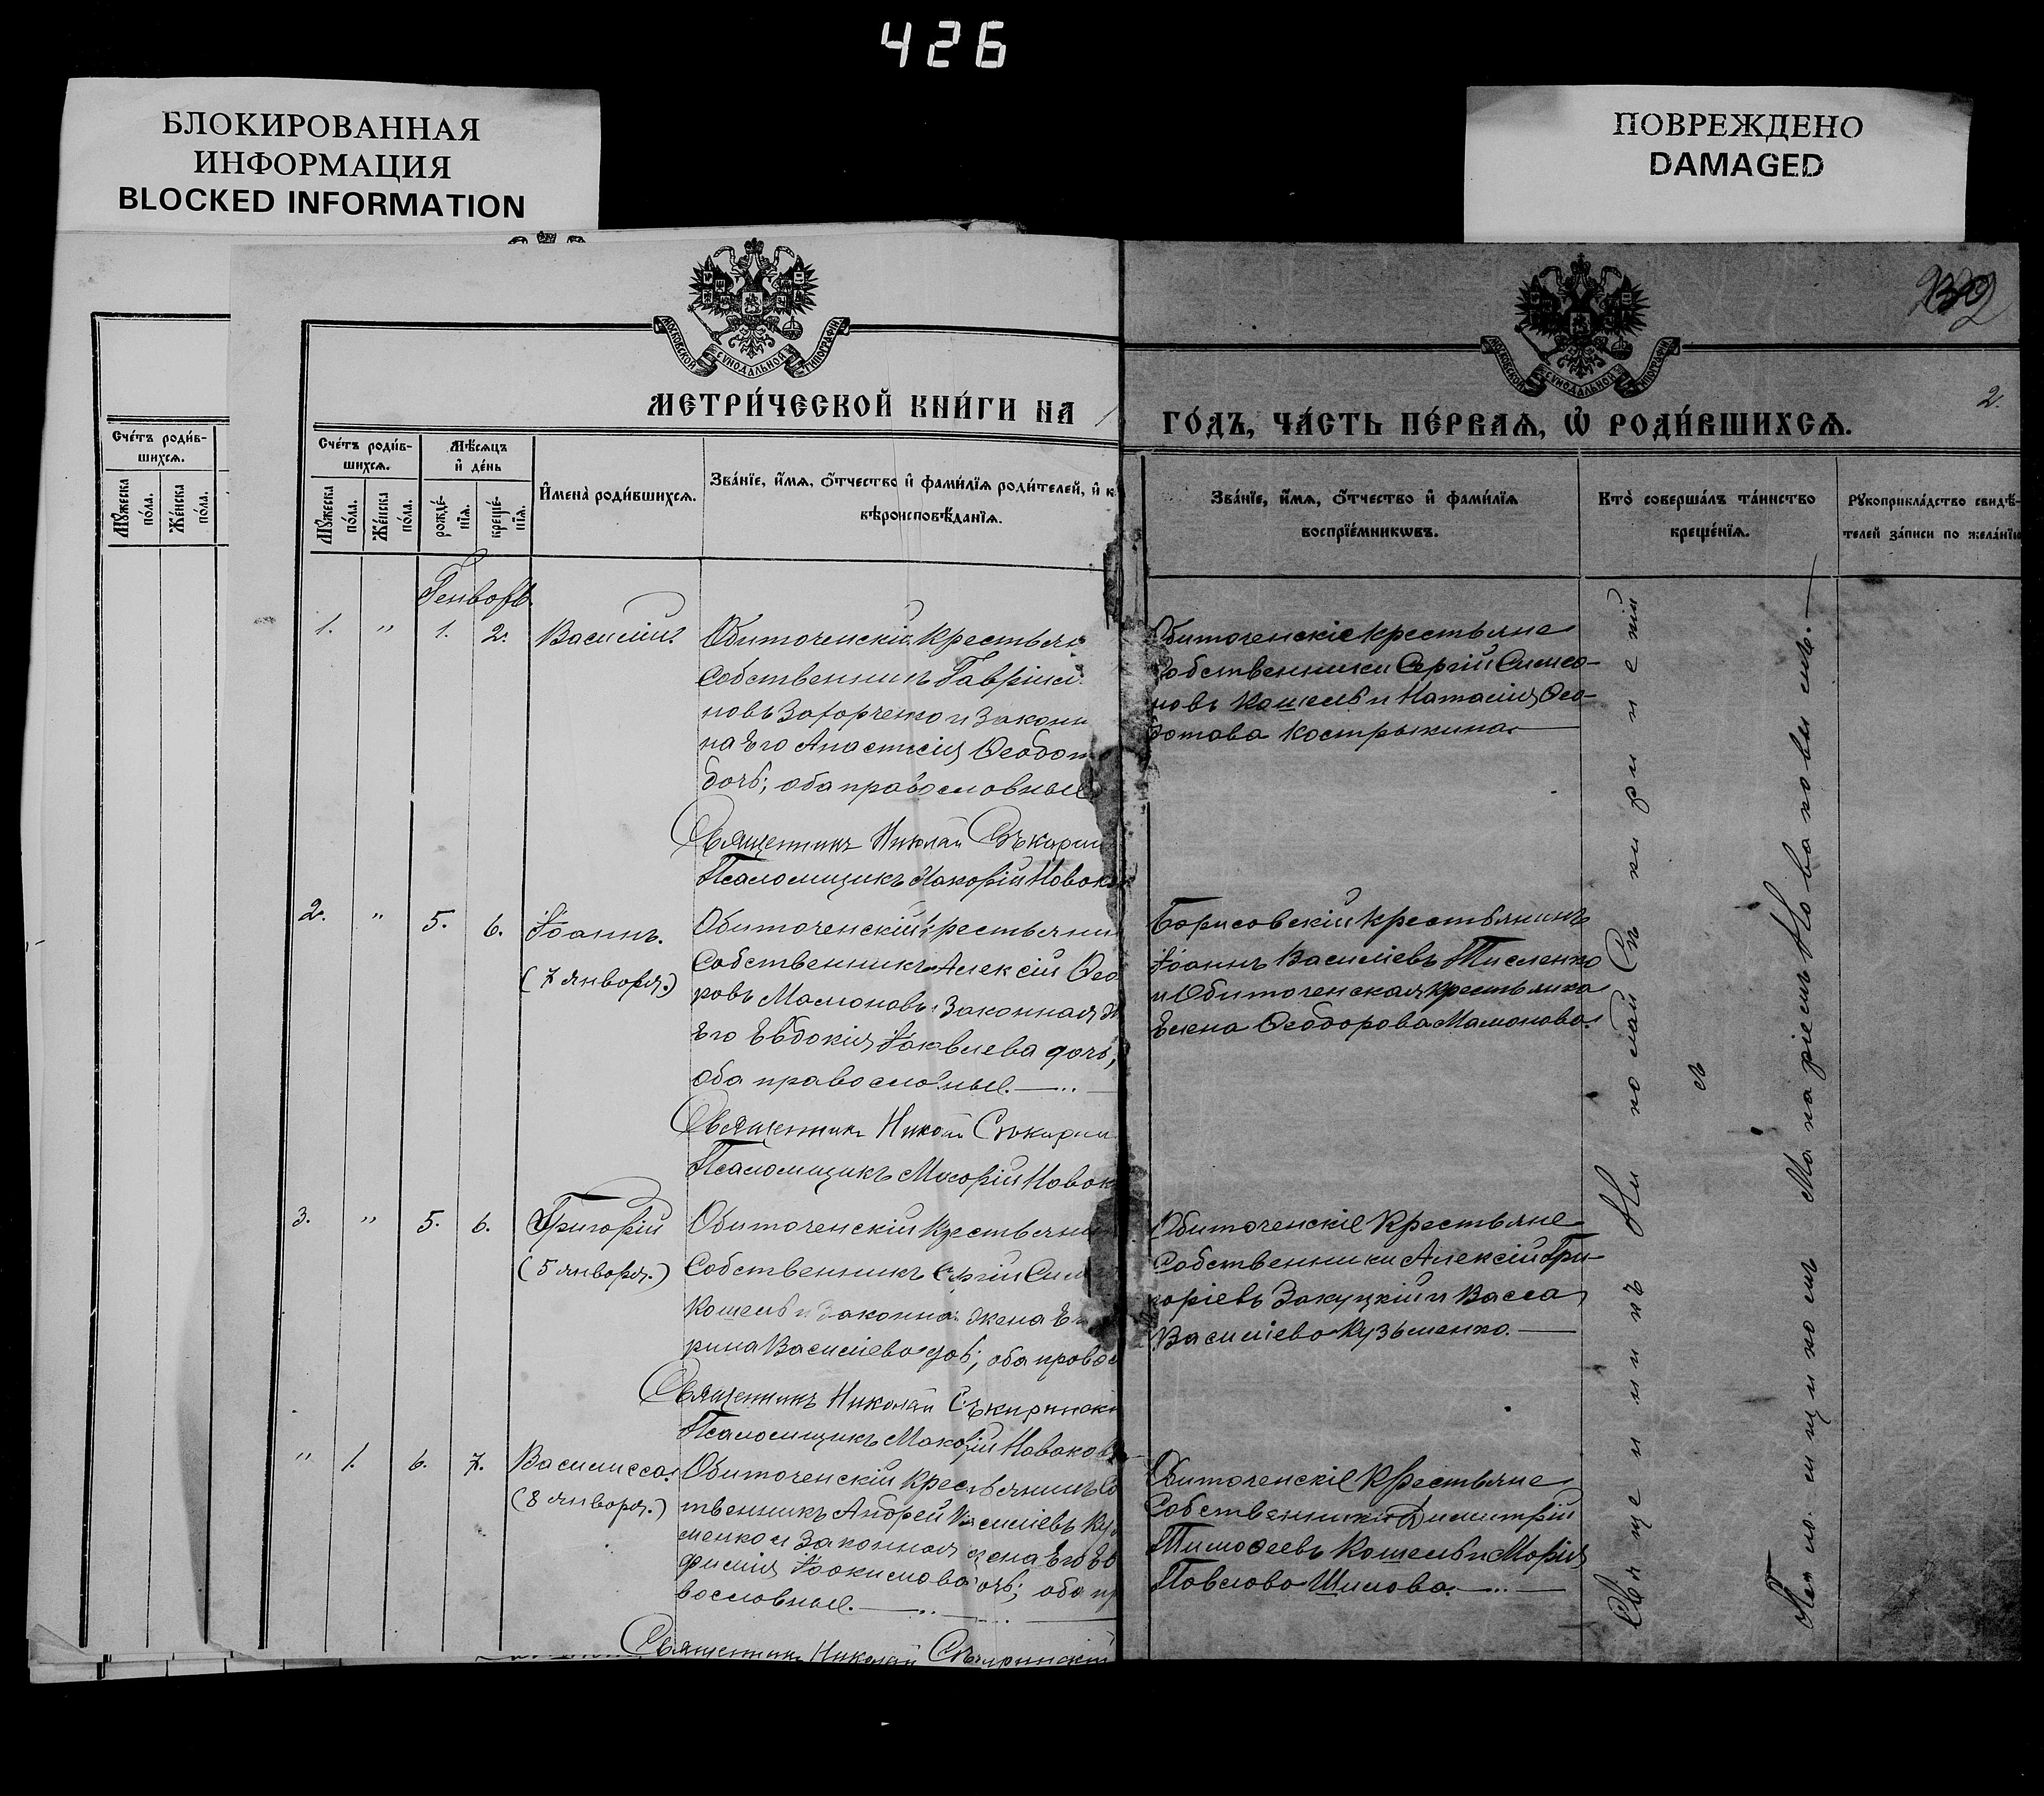 426
БЛОКИРОВАННАЯ
ИНФОРМАЦИЯ
BLOCKED INFORMATION
ПОВРЕЖДЕНО
DAMAGED
МОСКОВСКОЙ СУНОДАЛЬНОЙ ТИПОГРАФІИ
МОСКОВСКОЙ СУНОДАЛЬНОЙ ТИПОГРАФІИ
2.
МЕТРИ́ЧЕСКОЙ КНИ́ГИ НА
ГО́ДЪ, ЧА́СТЬ ПЕ́РВАѦ, Ѡ РОДИ́ВШИХСѦ.
Сче́тъ роди́в-
шихсѧ.
Мꙋжеска
по́ла.
Же́нска
по́ла.
Сче́тъ роди́в-
шихсѧ.
Мꙋжеска
по́ла.
Же́нска
по́ла.
Мѣ́сѧцъ
и де́нь
рожде́-
нїѧ.
креще́-
нїѧ.
Имена̀ роди́вшихсѧ.
Зва́нїе, и́мѧ, ѻ́тчество и фами́лїѧ роди́телей, и к
вѣроисповѣ́данїѧ.
Зва́нїе, и́мѧ, ѻ́тчество и фами́лїѧ
воспрїе́мникѡвъ.
Кто̀ соверша́лъ та́инство
креще́нїѧ.
Рꙋкоприкла́дство свидѣ́-
телей за́писи по жела́нїю
Генварь.
1. " 1. 2. Василій. Обиточенскій крестьян
собственникъ Гавріил
новъ Захарченко и законн
на его Анастасія Ѳеодот
дочь; оба православные
Священникъ Николай Сѣкирин
Псаломщикъ Макарій Новок
Обиточенскіе крестьяне
собственники Сергій Симео-
новъ Кошель и Наталія Ѳео-
дотова Кострыкина.
2. " 5. 6. Іоаннъ.
(7 января.)
Обиточенскій крестьянин
собственникъ Алексій Ѳео
ровъ Мамоновъ и законная ж
его Евдокія Іаковлева дочь,
оба православные.
Священникъ Николай Сѣкирин
Псаломщикъ Макарій Новок
Борисовскій крестьянинъ
Іоаннъ Василіевъ Тисленко
и Обиточенская крестьянка
Елена Ѳеодорова Мамонова.
3. " 5. 6. Григорій
(5 января.)
Обиточенскій крестьянин
собственникъ Сергій Сим
Кошель и законная жена Е
рина Василіева дочь; оба правос
Священникъ Николай Сѣкиринскі
Псаломщикъ Макарій Новаков
Обиточенскіе крестьяне
собственники Алексій Гри-
горіевъ Закуцкій и Васса
Василіева Кузьменко.
" 1. 6. 7. Василисса.
(8 января.)
Обиточенскій крестьянинъ со
твенникъ Андрей Василіевъ Куз
менко и законная жена его Ев
фимія Іоакимова дочь; оба пр
вославные.
Священникъ Николай Сѣкиринскій
Обиточенскіе крестьяне
собственники Димитрій
Тимоѳеевъ Кошель и Марія
Павлова Шилова.
Священникъ Николай Сѣкиринскій
съ
Псаломщикомъ Макаріемъ Новаковымъ.